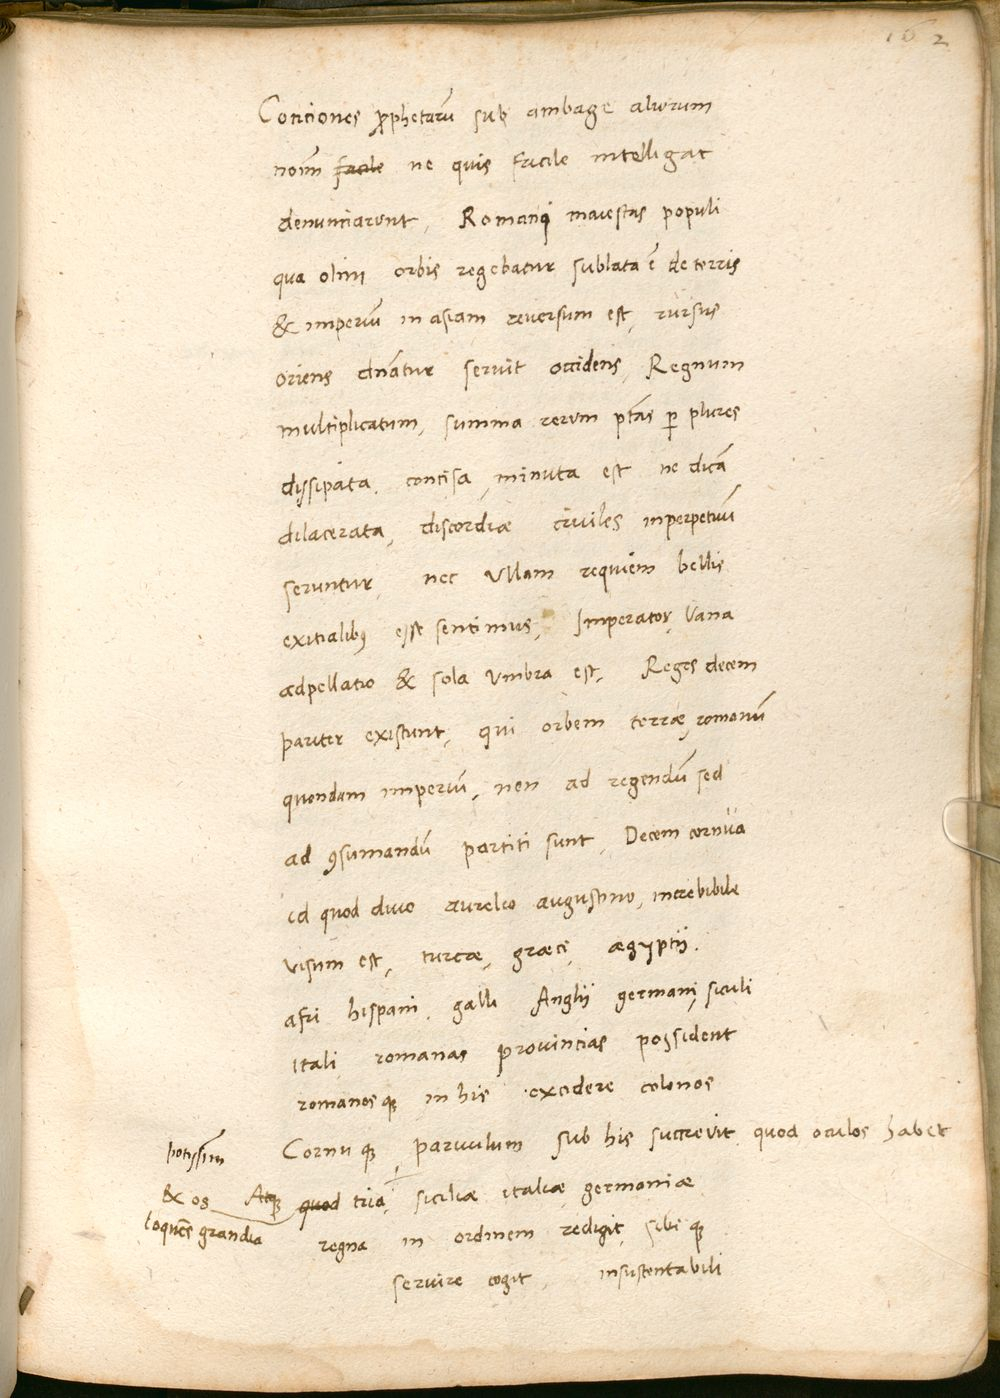 162
Conciones ꝓphetarū sub ambage aliorum
noīm facile ne quis facile intelligat
denunciarunt, Romani maiestas populi
qua olim orbis regebatur sublata ē de terris
& imperiū in asiam reuersum est, rursus
oriens dn̄atur seruit occidens, Regnum
multiplicatum, summa rerum ptās ꝑ plures
dissipata, concisa, minuta est ne dicā
dilacerata, discordiæ ciuiles inperpetuū
seruntur, nec Vllam requiem bellis
exitialibꝰ esse sentimus, Imperator, Vana
adpellatio & sola Vmbra est, Reges decem
pariter existunt, qui orbem terræ, romanū
quondam imperiū, non ad regendū sed
ad ꝯsumandū partiti sunt, Decem cornua
id quod diuo aurelio augustino, increbibile
visum est, turcæ, græci, ægyptij.
afri hispani, galli Anglij germani, siculi
Itali romanas prouincias possident
romanosqꝫ in his excidere colonos
Cornuqꝫ, paruulum sub his succreuit quod oculos habet
potissim̄
& os Atqꝫ quod tria, siciliæ italiæ germaniæ
loquēs grandia
regna in ordinem redigit, sibiqꝫ
seruire cogit, insustentabili